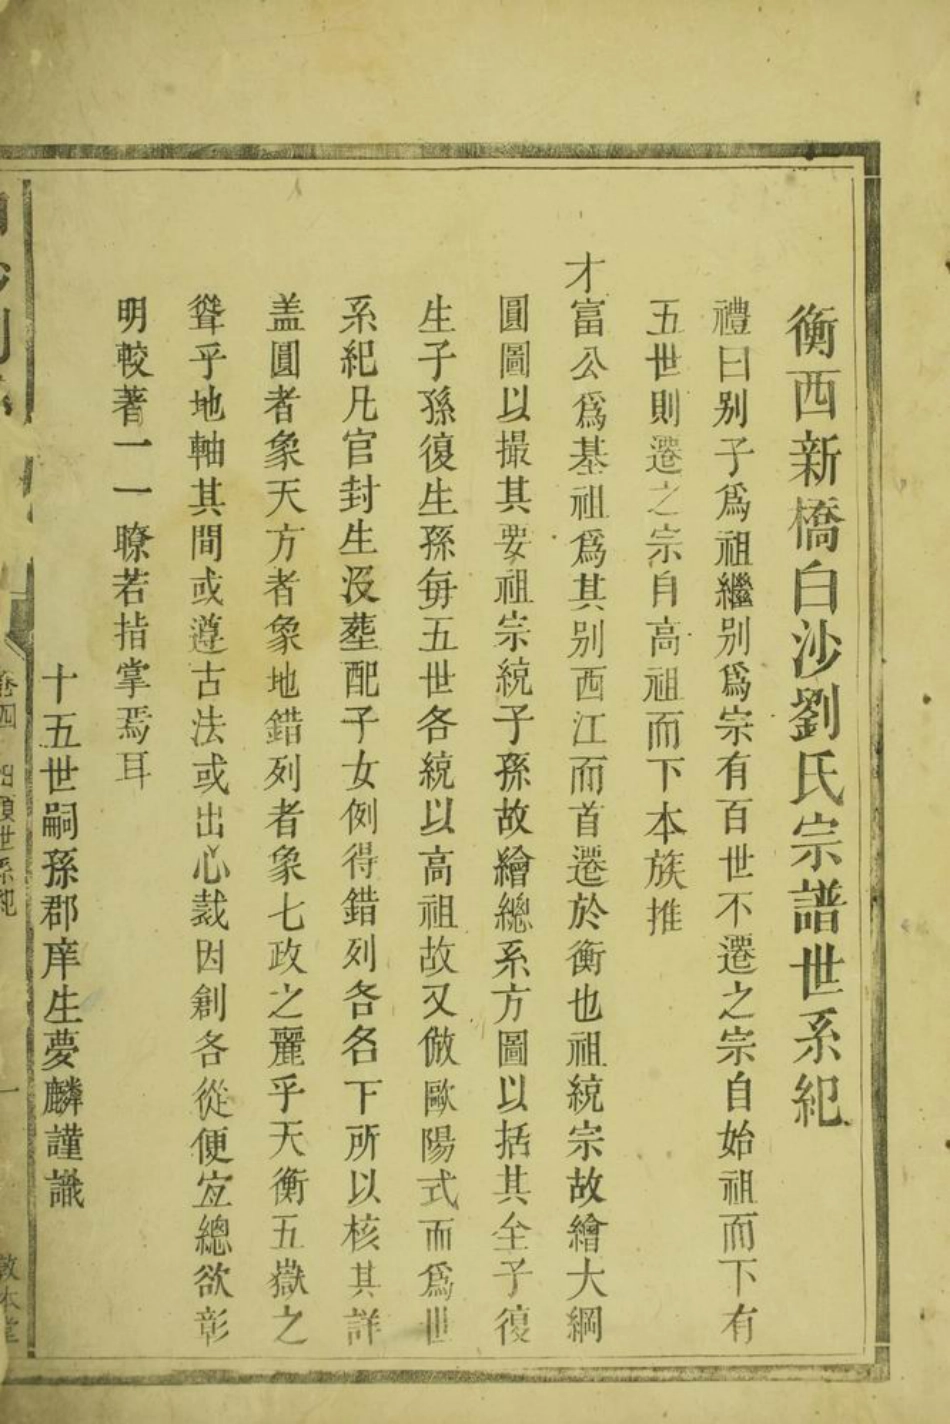 衡西新橋白沙劉氏宗譜世系紀
禮曰别子爲祖繼别爲宗有百世不遷之宗自始祖而下有
五世則遷之宗自高祖而下本族推
才富公爲基祖爲其别西江而首遷於衡也祖統宗故繪大綱
圓圖以撮其要祖宗統子孫故繪總系方圖以括其全子復
生子孫復生孫每五世各統以高祖故又倣歐陽式而爲世
系紀凡官封生没塟配子女例得錯列各名下所以核其詳
盖圓者象天方者象地錯列者象七政之麗乎天衡五嶽之
聳乎地軸其間或遵古法或出心裁因創各從便宐總欲彰
明較著一一瞭若指掌焉耳
十五世嗣孫郡庠生夢麟謹識
卷四
世系紀
一
敦本堂